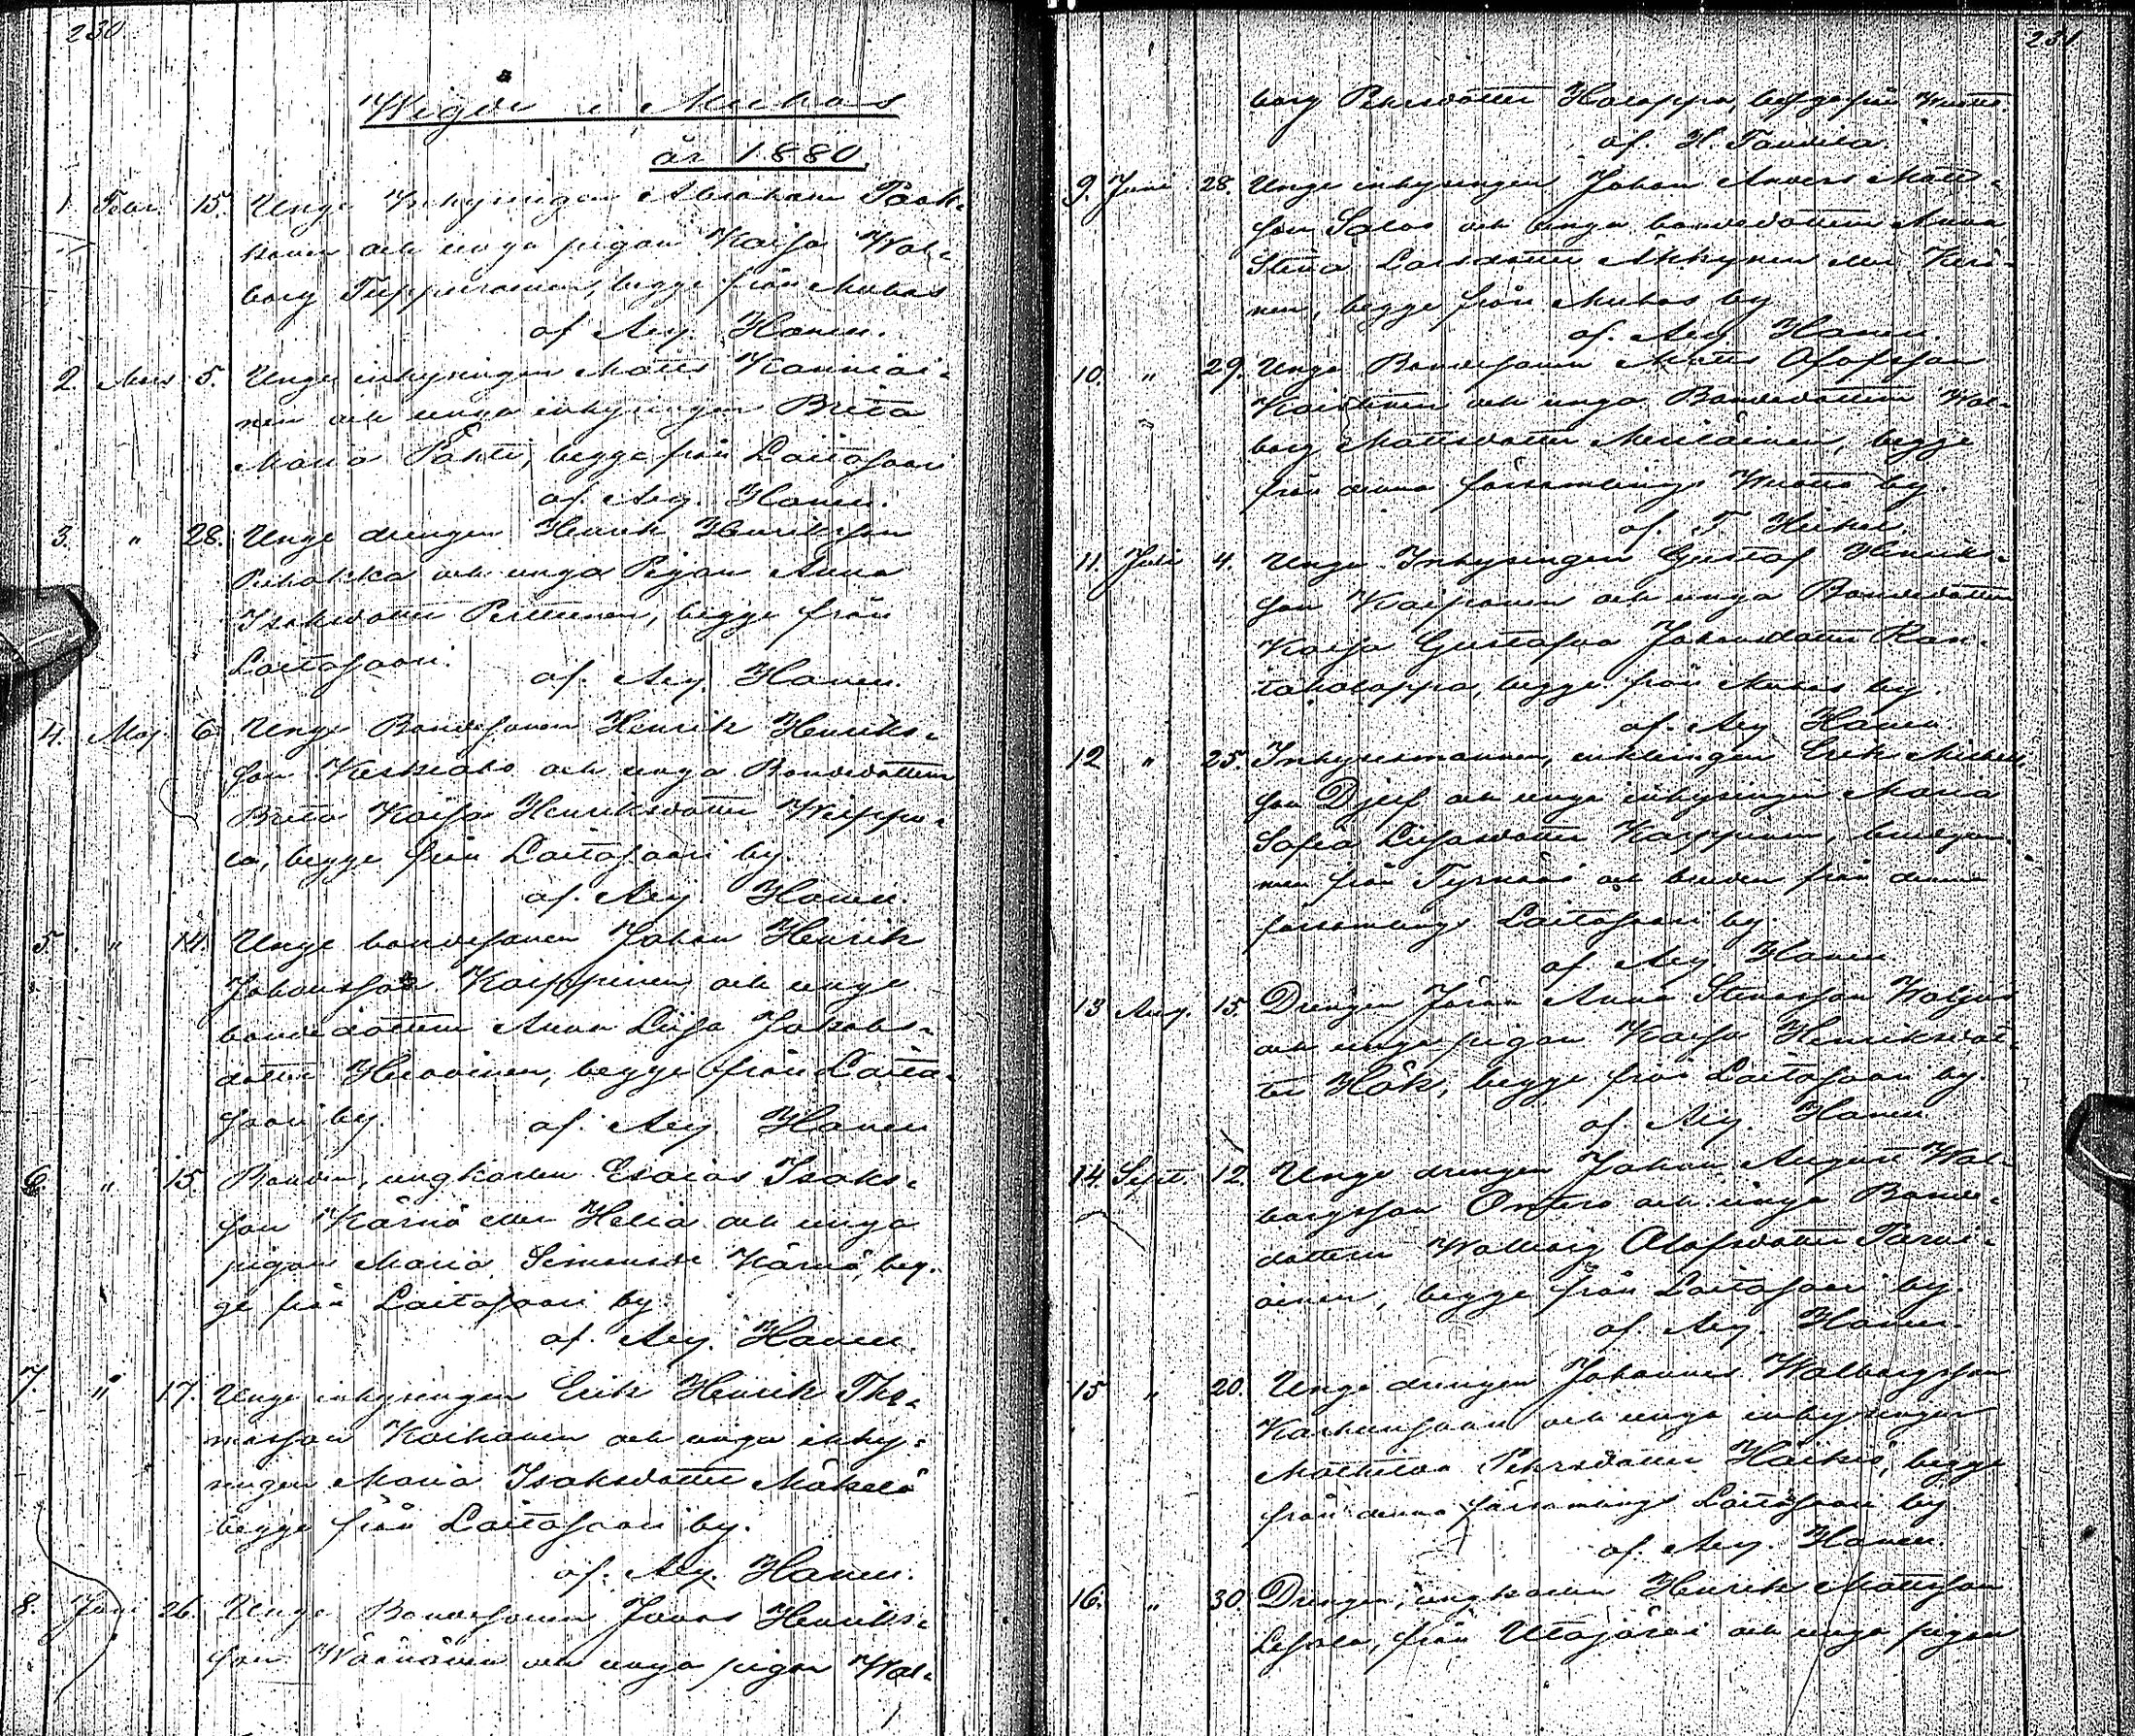 230
Wigde i Muhos
år 1880.
1. Febr. 15. Unge Inhysingen Abraham Paak-
konen och unga pigan Kaisa Wal-
borg Tuppurainen, begge från Muhos
af. Aug. Hanen.
2. Mars 5. Unge inhysingen Matts Kanniai-
nen och unga inhysingen Brita
Maria Pahti, begge från Laitasaari
af Aug. Hanen.
3. " 28. Unge drengen Henrik Henriksson
och unga Pigan Anna
Isaksdotter Perttunen, begge från
Laitasaari. af. Aug. Hanen.
4. Maj 6 Unge Bondesonen Henrik Henriks-
son och unga Bondedottern
Brita Kaisa Henriksdotter Weppo-
la, begge från Laitasaari by.
af. Aug. Hanen.
5 " 14. Unge bondesonen Johan Henrik
Johansson Kaipponen och unge
bondedottern Anna Liisa Jakobs-
dotter Huovinen, begge från Laita-
saari by. af. Aug. Hanen
6. " 15. Bonden, ungkarlen Esaias Isaks-
son Kärnä eller Helia och unga
pigan Maria Simonsdr Kärnä, beg-
ge från Laitasaari by.
af. Aug. Hanen
7. " 17. Unge inhysingen Erik Henrik Tho-
masson Koikanen och unga inhy-
singen Maria Isaksdotter Mäkelä
begge från Laitasaari by.
af. Aug. Hanen.
8. Juni 26. Unge Bondesonen Jonas Henriks-
son Wäänänen och unga pigan Wal-
231
borg Pehrsdotter Holappa, begge från
af. H. Tandila.
9. Juni 28. Unge inhysingen Johan Anders Matts-
son Salos och unga bondedottern Anna
Stina Larsdotter eller Kerä-
nen, begge från Muhos by
af. Aug. Hanen.
10. " 29. Unge Bondesonen Matts Olofsson
och unga Bondedottern Wal-
borg Mattsdotter Meriläinen, begge
från denna församlings by.
af. T. Heikel
11. Juli 4. Unge Inhysingen Gustaf Henriks-
son och unga Bondedottern
Kaisa Gustafva Johansdotter Ran-
taholappa, begge från Muhos by.
af. Aug. Hanen
12 " 25. Inhysesmannen, enklingen Erik Michels-
son Djuf och unga inhysingen Maria
Sofia Liisasdotter Karppinen, brudgum-
men från Tyrnäwä och bruden från denna
församlings Laitasaari by.
af. Aug. Hanen
13 Aug. 15. Drengen Jöran Anna Stinasson
och unge pigan Kaisa Henriksdot-
ter Hök, begge från Laitasaari by.
af. Aug. Hanen
14. Sept. 12. Unge drengen Johan August Wal-
borgsson Ontero och unga Bonde-
dottern Walborg Olofsdotter Parvi-
ainen, begge från Laitasaari by.
af. Aug. Hanen.
15 " 20. Unge drengen Johannes Walborgsson
Karhunsaari och unga inhysingen
Mathilda Pehrsdotter Haikio, begge
från denna församlings Laitasaari by
af. Aug. Hanen.
16. " 30. Drengen, ungkarlen Henrik Mattsson
från Utajärvi och unga pigan